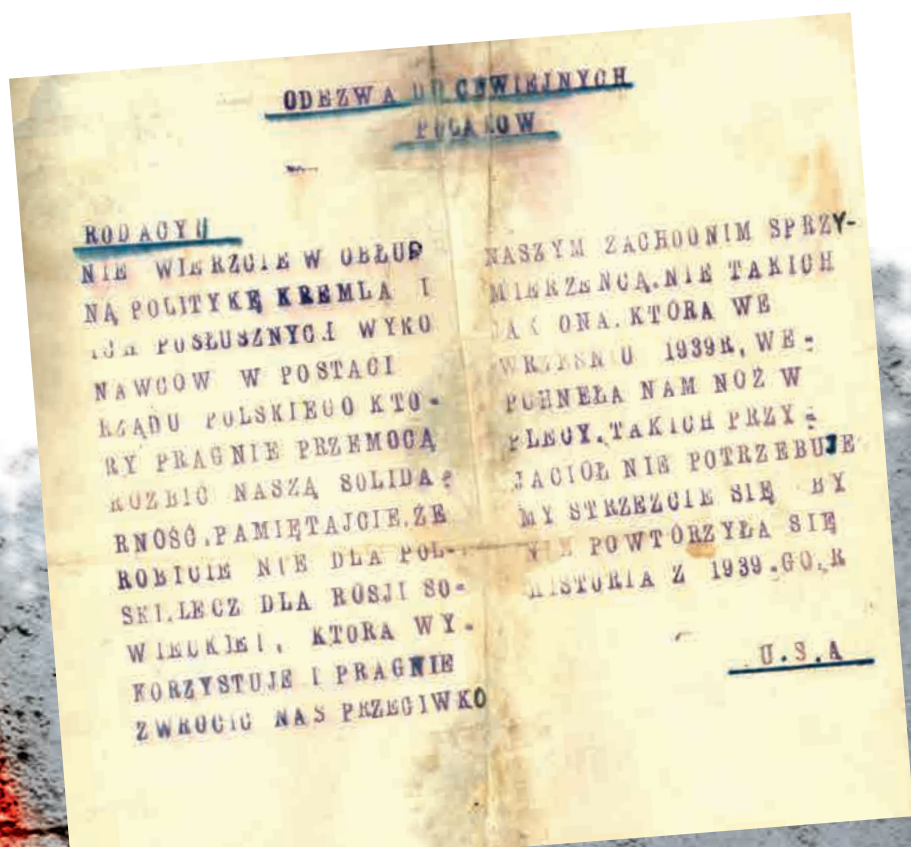 ODEZWA DO CHWIEJNYCH
POLAKOW
RODACY!!
NIE WIERZCIE W OBŁUD
NĄ POLITYKĘ KREMLA I
ICH POSŁUSZNYCH WYKO
NAWCOW W POSTACI
RZĄDU POLSKIEGO KTO-
RY PRAGNIE PRZEMOCĄ
ROZBIC NASZĄ SOLIDA-
RNOSC.PAMIĘTAJCIE.ZE
ROBICIE NIE DLA POL-
SKI.LECZ DLA ROSJI SO-
WIECKIEJ, KTORA WY-
KORZYSTUJE I PRAGNIE
ZWROCIC NAS PRZECIWKO
NASZYM ZACHODNIM SPRZY-
MIERZEŃCĄ.NIE TAKICH
JAK ONA.KTÓRA WE
WRZESNIU 1939R, WE-
PCHNEŁA NAM NOŻ W
PLECY.TAKICH PRZY-
JACIOŁ NIE POTRZEBUJE
MY STRZEZCIE SIĘ BY
NIE POWTORZYŁA SIĘ
HISTORIA Z 1939.GO.R
U.S.A